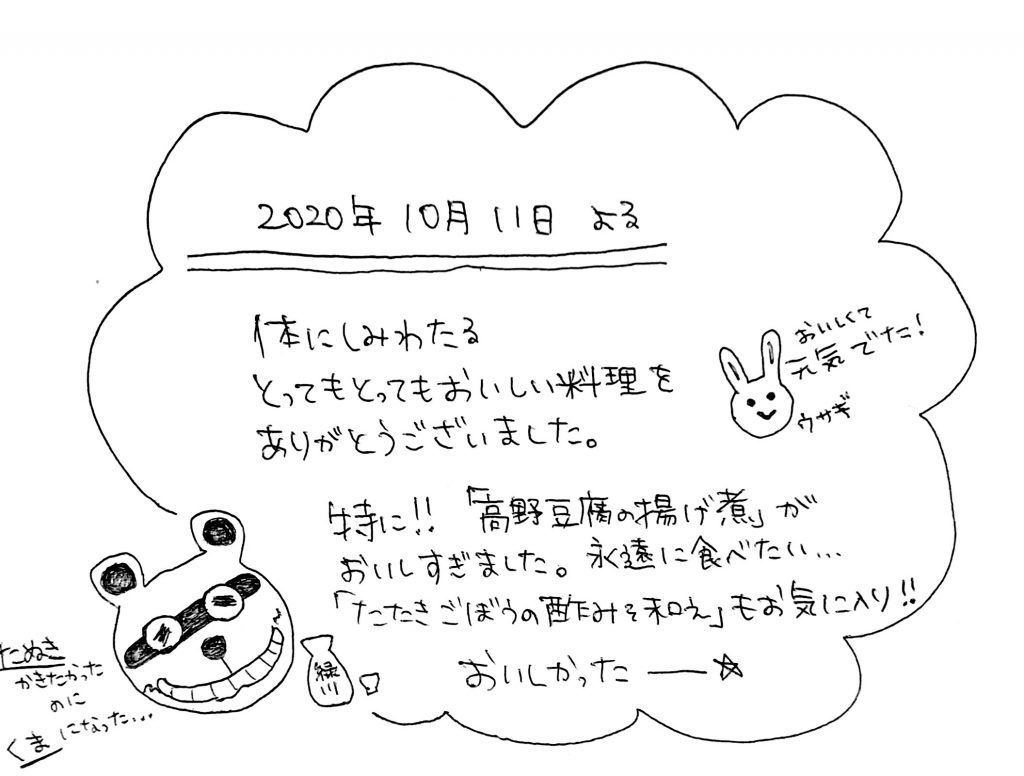 2020年 10月 11日 よる
体にしみわたる
とってもとってもおいしい料理を
ありがとうございました。
おいしくて
元気でた!
ウサギ
特に!! 「高野豆腐の揚げ煮」が
おいしすぎました。永遠に食べたい...
「たたきごぼうの酢みそ和え」もお気に入り!!
おいしかった ー☆
たぬき
かきたかった
のに
くまになった...
緑川